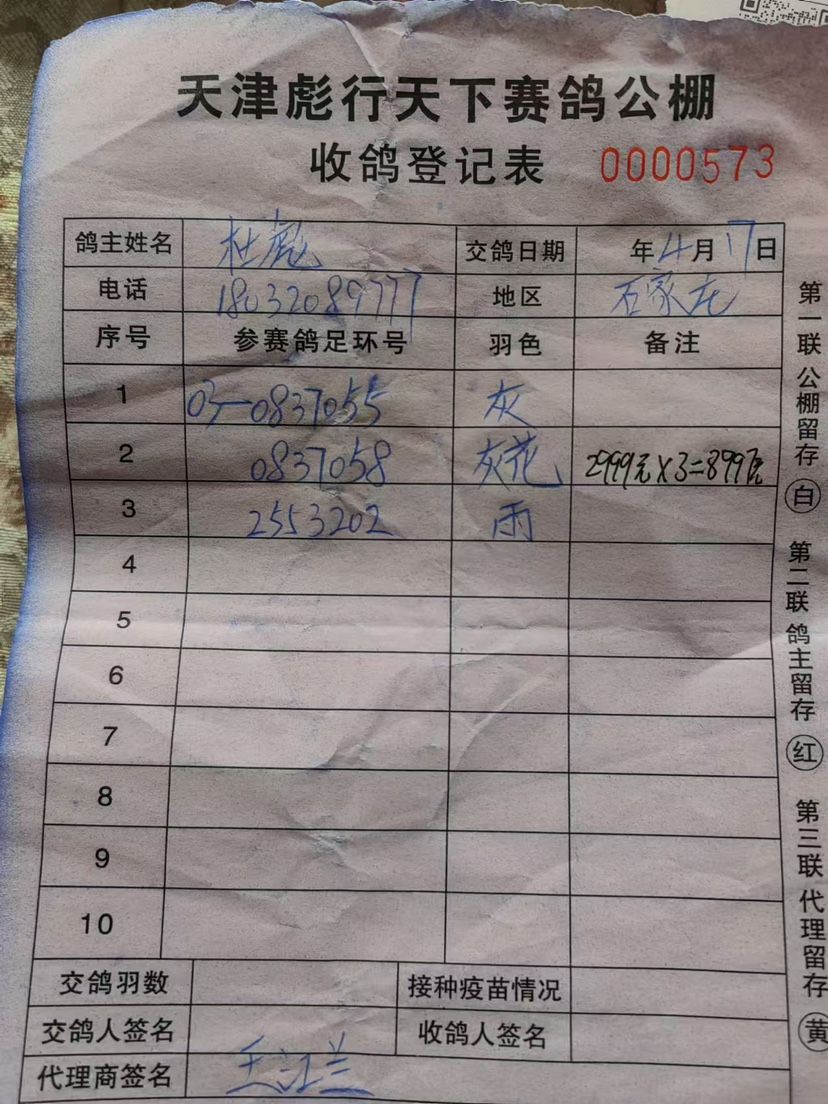 天津彪行天下赛鸽公棚
收鸽登记表 0000573
鸽主姓名 杜彪 交鸽日期 年4月17日
电话 18032089777 地区 石家庄
序号 参赛鸽足环号 羽色 备注
1 03-0837055 灰
2 0837058 灰花 2999元×3=8997元
3 2553202 雨
4
5
6
7
8
9
10
交鸽羽数 接种疫苗情况
交鸽人签名 收鸽人签名
代理商签名 王江兰
第一联 公棚留存 白
第二联 鸽主留存 红
第三联 代理留存 黄